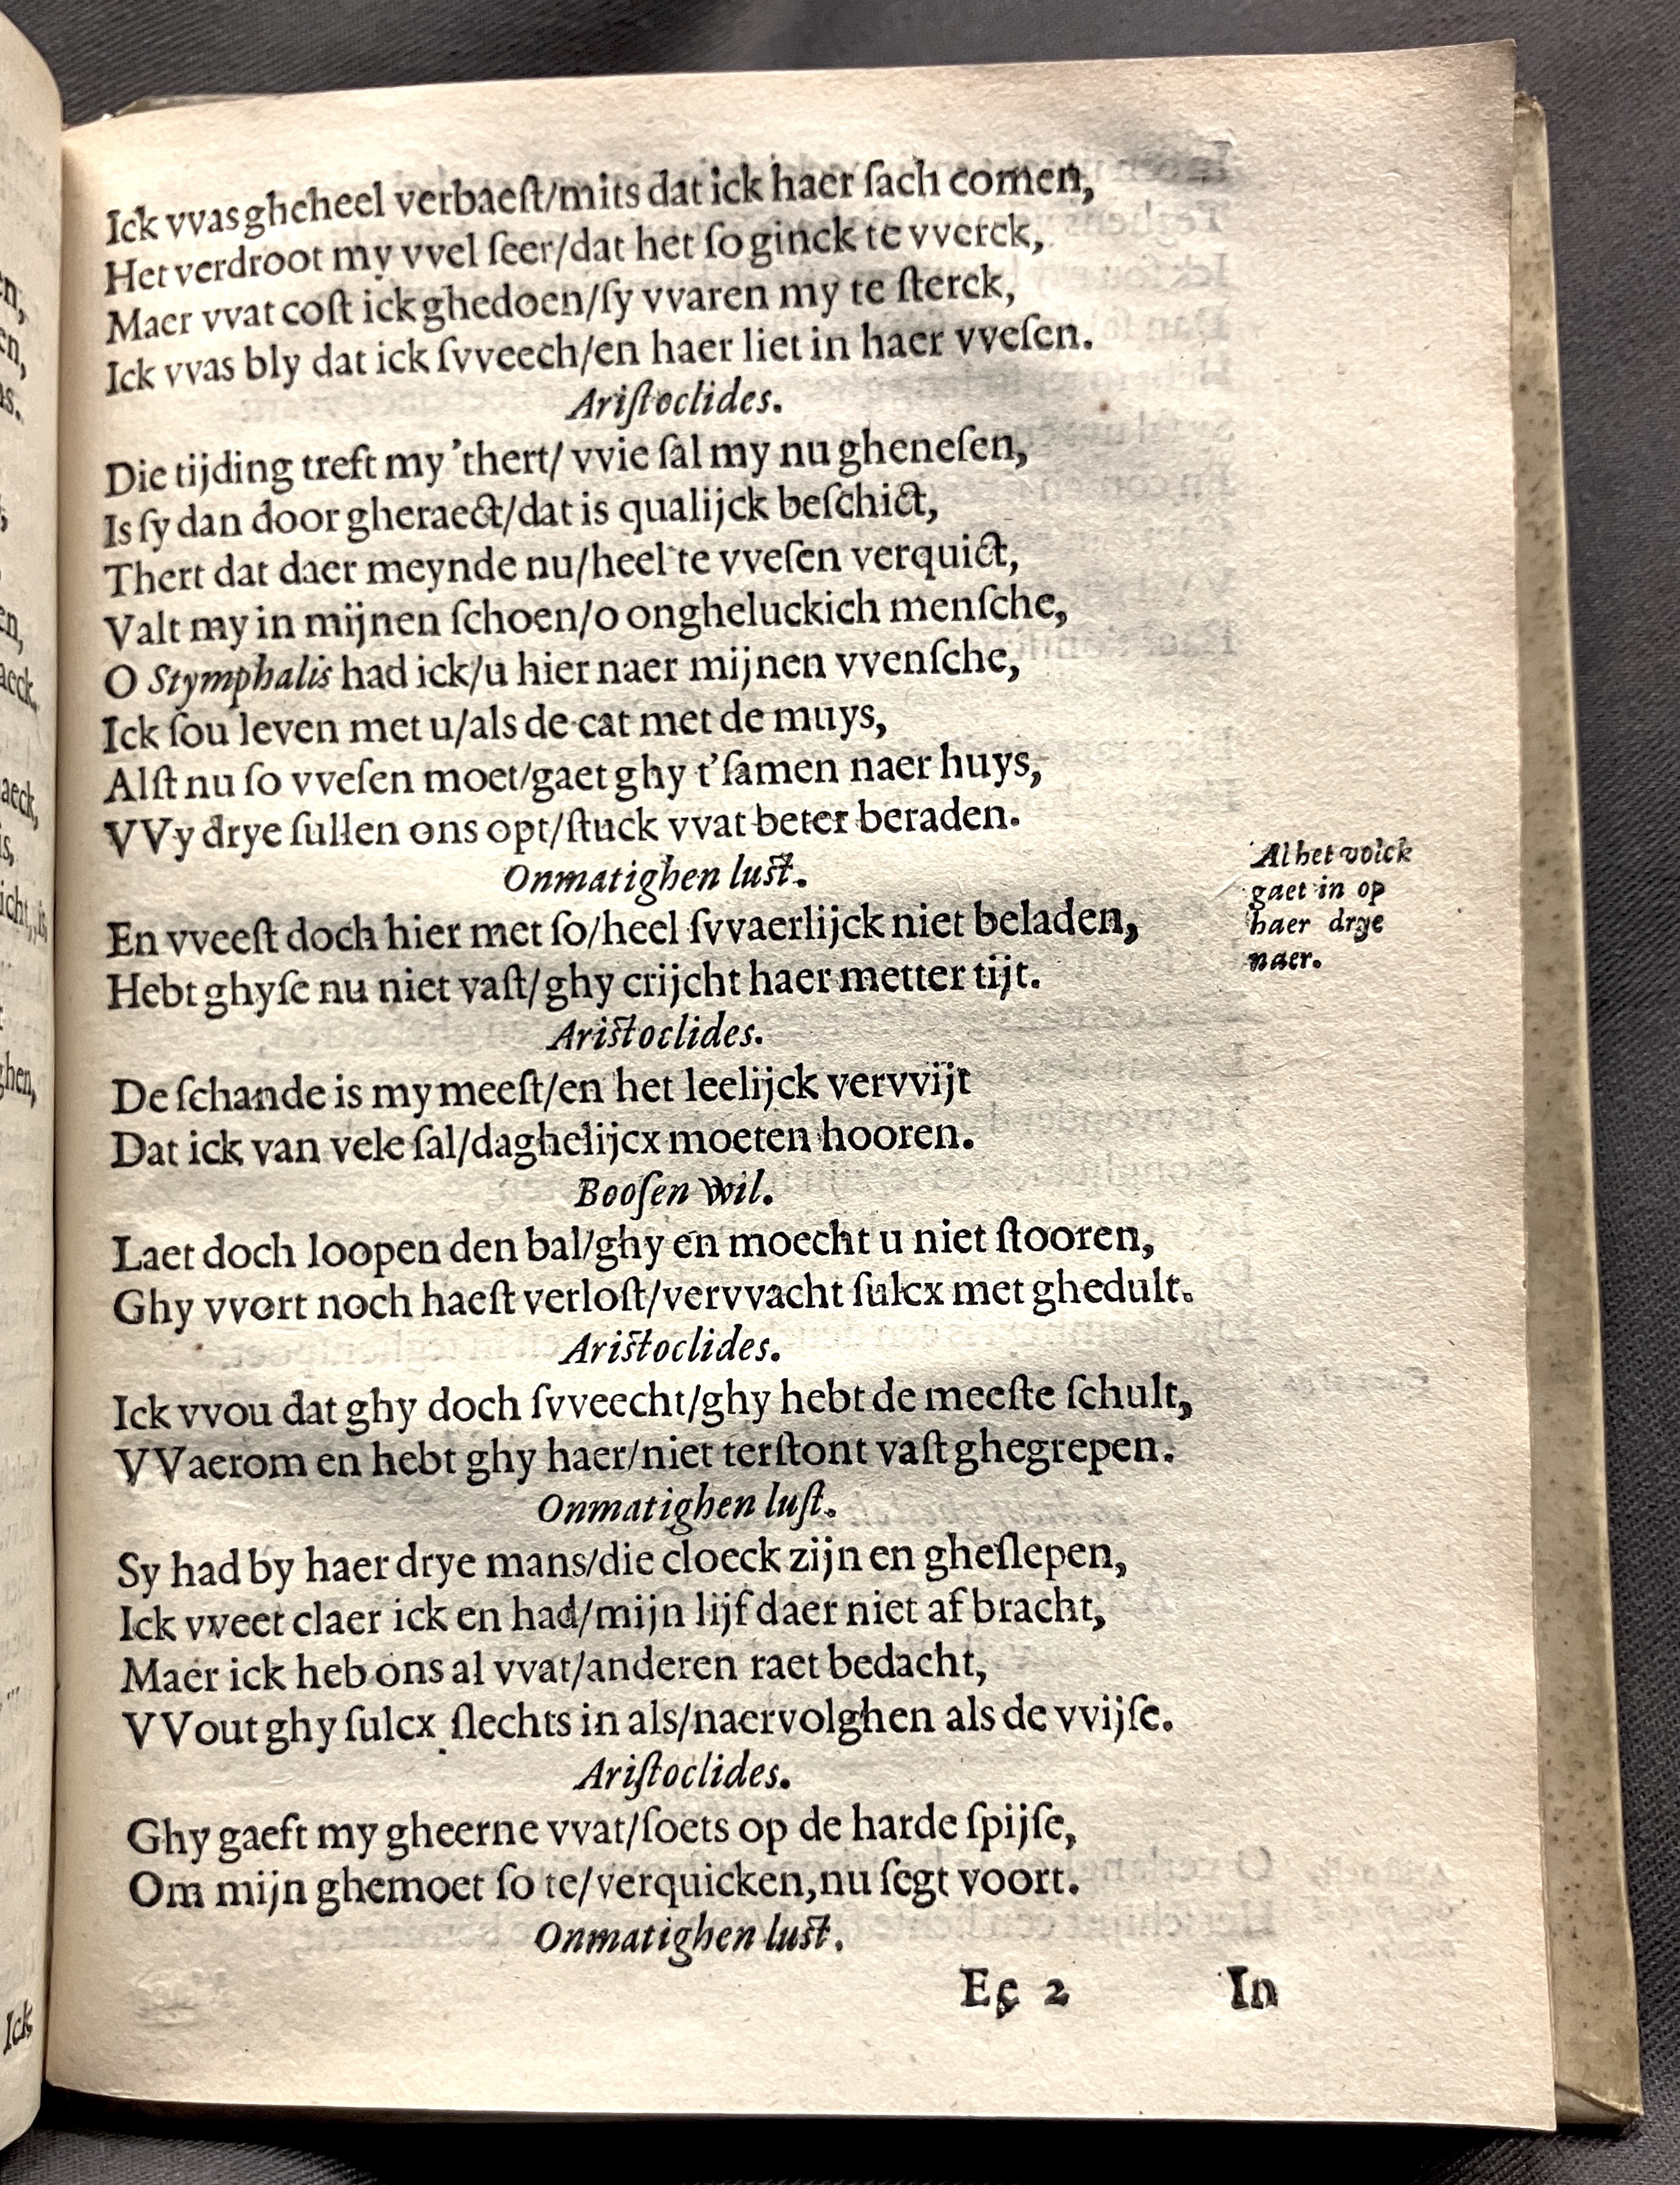 Ick vvas gheheel verbaeſt/mits dat ick haer ſach comen,
Het verdroot my vvel ſeer/dat het ſo ginck te vverck,
Maer vvat coſt ick ghedoen/ſy vvaren my te ſterck,
Ick vvas bly dat ick ſvveech/en haer liet in haer vveſen.
Ariſtoclides.
Die tijding treft my 'thert/ vvie ſal my nu gheneſen,
Is ſy dan door gheraect/dat is qualijck beſchict,
Thert dat daer meynde nu/heel te vveſen verquict,
Valt my in mijnen ſchoen/o ongheluckich menſche,
O Stymphalis had ick/u hier naer mijnen vvenſche,
Ick ſou leven met u/als de cat met de muys,
Alſt nu ſo vveſen moet/gaet ghy t'ſamen naer huys,
VVy drye ſullen ons opt/ſtuck vvat beter beraden.
Onmatighen luſt.
Al het volck
gaet in op
haer drye
naer.
En vveeſt doch hier met ſo/heel ſvvaerlijck niet beladen,
Hebt ghyſe nu niet vaſt/ghy crijcht haer metter tijt.
Ariſtoclides.
De ſchande is my meeſt/en het leelijck vervvijt
Dat ick van vele ſal/daghelijcx moeten hooren.
Booſen wil.
Laet doch loopen den bal/ghy en moecht u niet ſtooren,
Ghy vvort noch haeſt verloſt/vervvacht ſulcx met ghedult.
Ariſtoclides.
Ick vvou dat ghy doch ſvveecht/ghy hebt de meeſte ſchult,
VVaerom en hebt ghy haer/niet terſtont vaſt ghegrepen.
Onmatighen luſt.
Sy had by haer drye mans/die cloeck zijn en gheſlepen,
Ick vveet claer ick en had/mijn lijf daer niet af bracht,
Maer ick heb ons al vvat/anderen raet bedacht,
VVout ghy ſulcx ſlechts in als/naervolghen als de vvijſe.
Ariſtoclides.
Ghy gaeft my gheerne vvat/ſoets op de harde ſpijſe,
Om mijn ghemoet ſo te/verquicken, nu ſegt voort.
Onmatighen luſt.
Eę 2 In
Ick